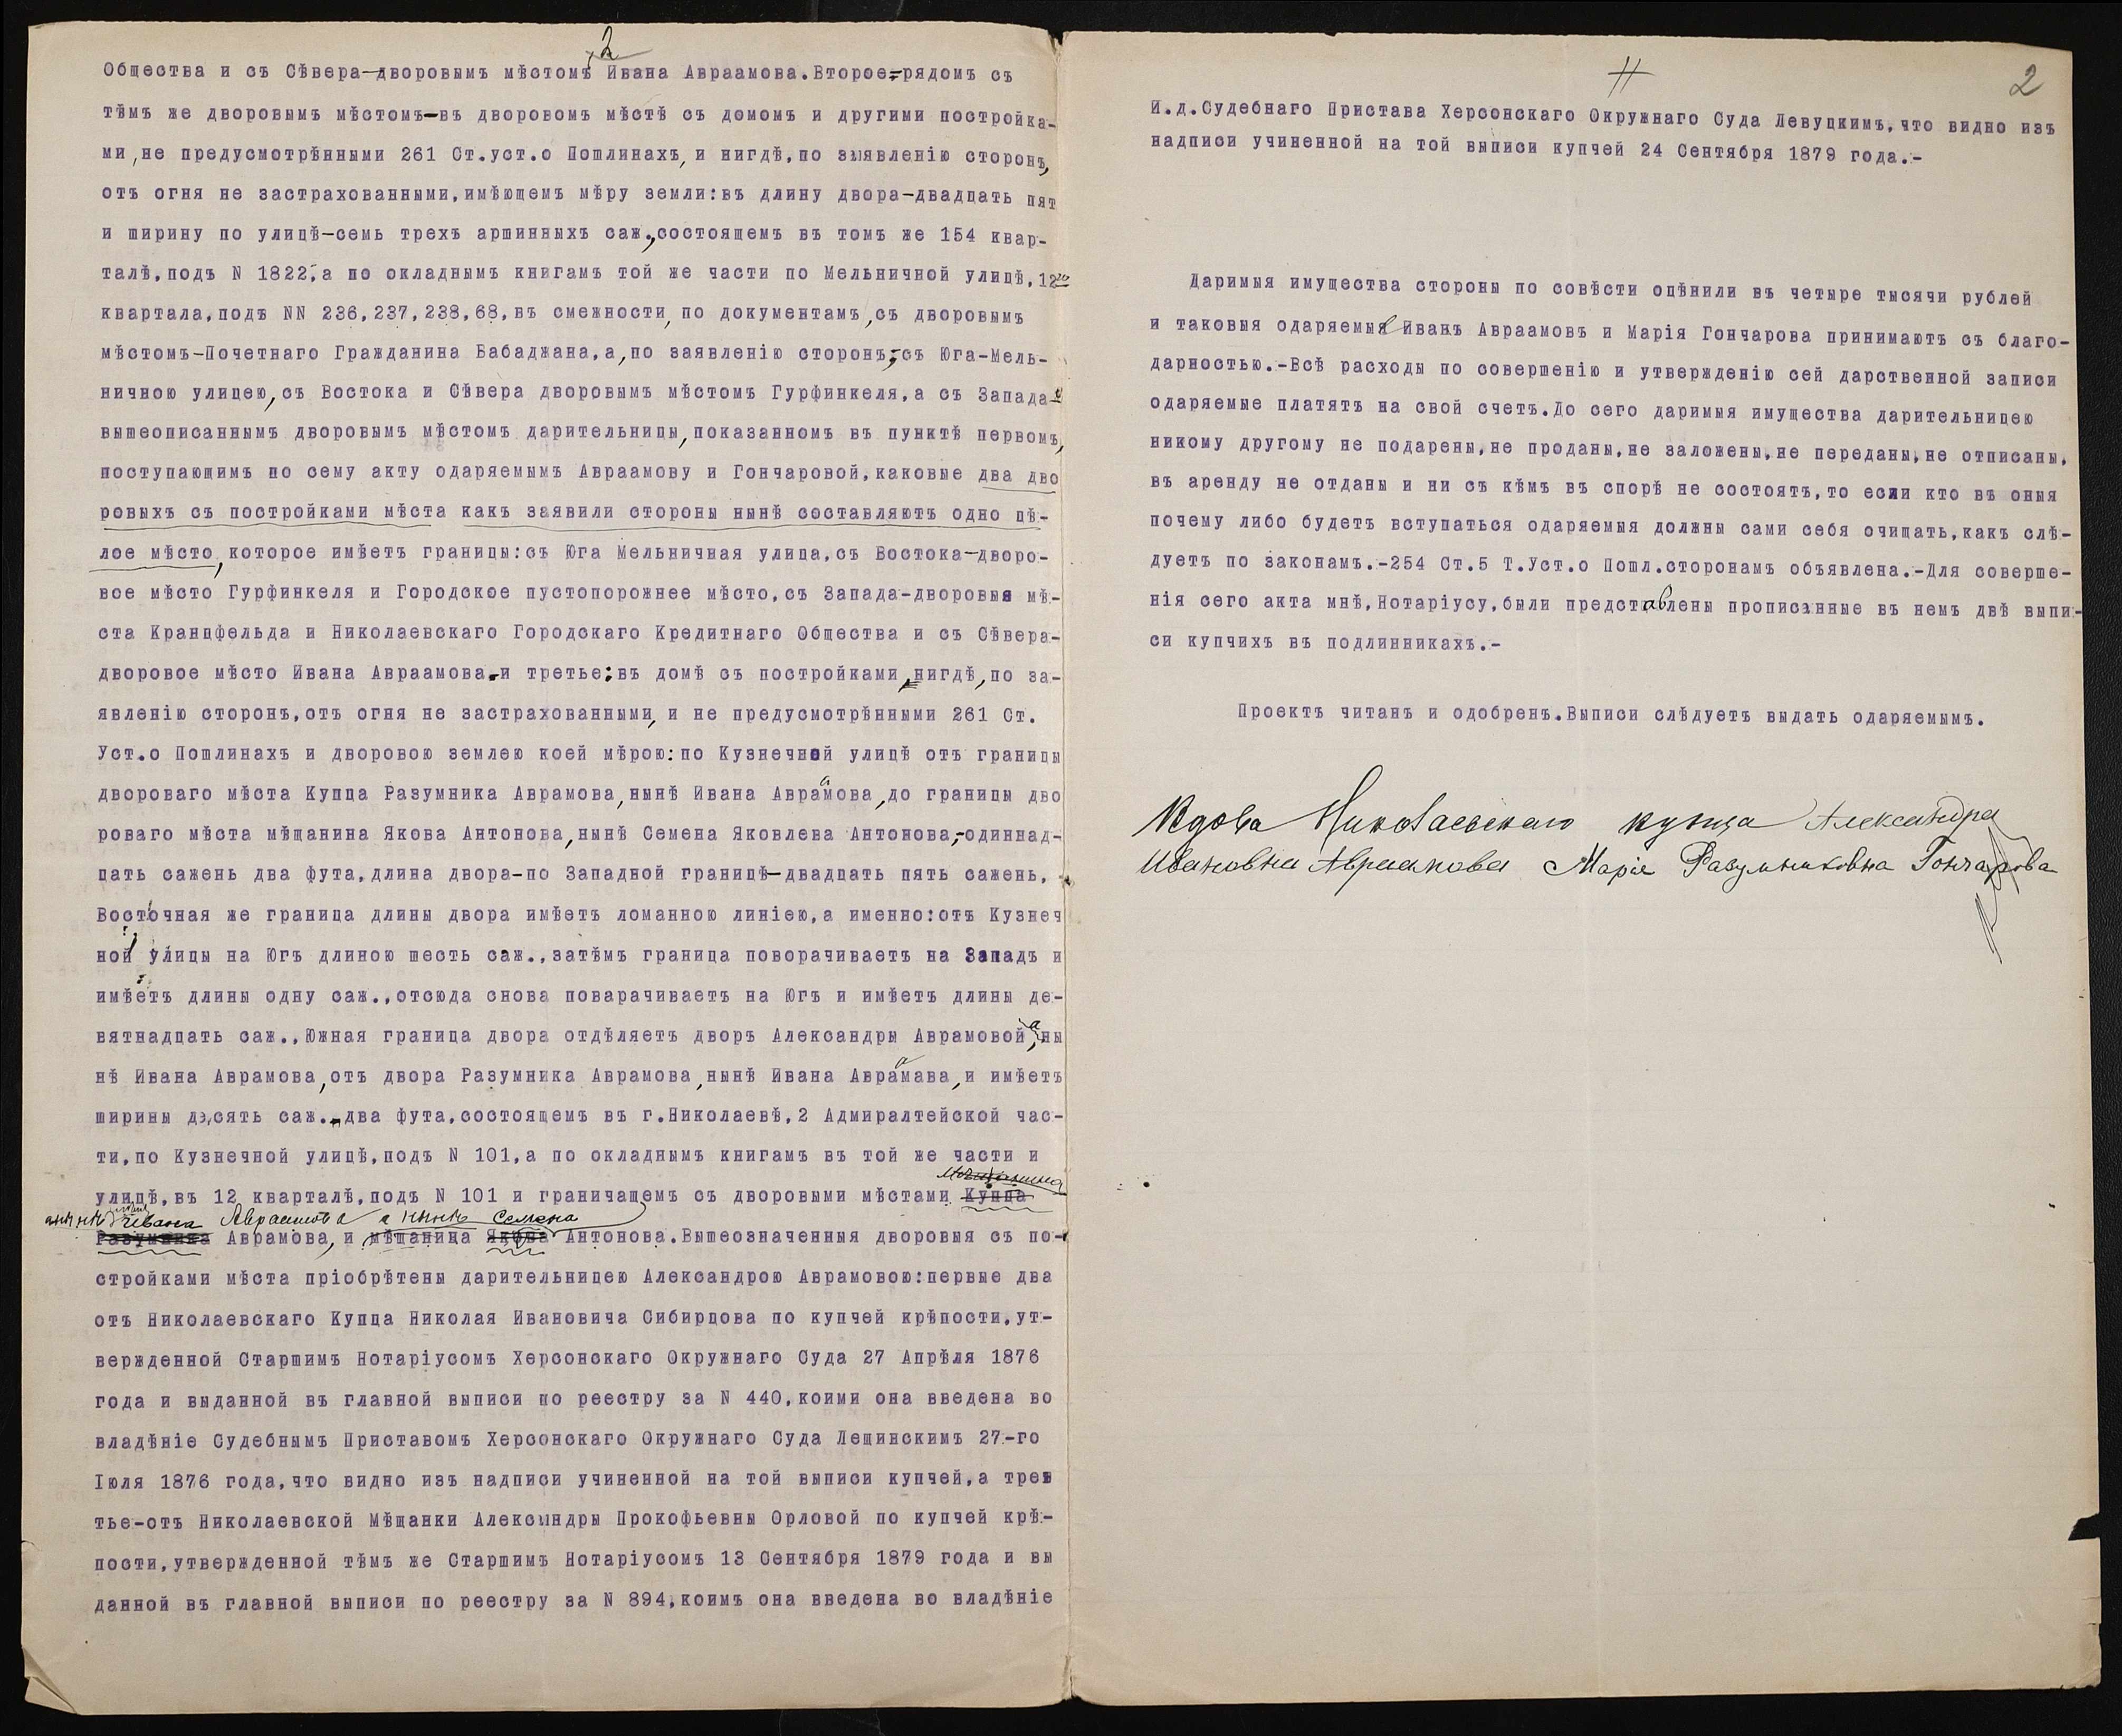 2
Общества и съ Сѣвера-дворовымъ мѣстомъ Ивана Авраамова.Второе-рядомъ съ
тѣмъ же дворовымъ мѣстомъ-въ дворовомъ мѣстѣ съ домомъ и другими постройка-
ми,не предусмотрѣнными 261 Ст.уст.о Пошлинахъ,и нигдѣ,по заявленію сторонъ,
отъ огня не застрахованными,имѣющемъ мѣру земли:въ длину двора-двадцать пят
и ширину по улицѣ-семь трехъ аршинныхъ саж.,состоящемъ въ томъ же 154 квар-
талѣ,подъ N 1822,а по окладнымъ книгамъ той же части по Мельничной улицѣ,12го
квартала,подъ NN 236,237,238,68,въ смежности,по документамъ,съ дворовымъ
мѣстомъ-Почетнаго Гражданина Бабаджана,а,по заявленію сторонъ,-съ Юга-Мель-
ничною улицею,съ Востока и Сѣвера дворовымъ мѣстомъ Гурфинкеля,а съ Запада-с
вышеописаннымъ дворовымъ мѣстомъ дарительницы,показанномъ въ пунктѣ первомъ,
поступающимъ по сему акту одаряемымъ Авраамову и Гончаровой,каковые два дво
ровыхъ съ постройками мѣста какъ заявили стороны нынѣ составляютъ одно цѣ-
лое мѣсто,которое имѣетъ границы:съ Юга Мельничная улица,съ Востока-дворо-
вое мѣсто Гурфинкеля и Городское пустопорожнее мѣсто,съ Запада-дворовыя мѣ-
ста Кранцфельда и Николаевскаго Городскаго Кредитнаго Общества и съ Сѣвера-
дворовое мѣсто Ивана Авраамова.-и третье:въ домѣ съ постройками,нигдѣ,по за-
явленію сторонъ,отъ огня не застрахованными,и не предусмотрѣнными 261 Ст.
Уст.о Пошлинахъ и дворовою землею коей мѣрою:по Кузнечной улицѣ отъ границы
двороваго мѣста Купца Разумника Аврамова,нынѣ Ивана Авраамова,до границы дво
роваго мѣста мѣщанина Якова Антонова,нынѣ Семена Яковлева Антонова,-одиннад-
цать сажень два фута,длина двора-по Западной границѣ-двадцать пять сажень,
Восточная же граница длины двора имѣетъ ломанною линіею,а именно:отъ Кузнеч
ной улицы на Югъ длиною шесть саж.,затѣмъ граница поворачиваетъ на Западъ и
имѣетъ длины одну саж.,отсюда снова поварачиваетъ на Югъ и имѣетъ длины де-
вятнадцать саж.,Южная граница двора отдѣляетъ дворъ Александры Аврамовой,а ны
нѣ Ивана Аврамова,отъ двора Разумника Аврамова,нынѣ Ивана Авраамава,и имѣетъ
ширины десять саж.-два фута,состоящемъ въ г.Николаевѣ,2 Адмиралтейской час-
ти,по Кузнечной улицѣ,подъ N 101,а по окладнымъ книгамъ въ той же части и
мѣщанина
улицѣ,въ 12 кварталѣ,подъ N 101 и граничащемъ съ дворовыми мѣстами Купца
Ивана Авраамова а нынѣ Семена
Разумника Аврамова,и мѣщаница Якова Антонова.Вышеозначенныя дворовыя съ по-
стройками мѣста пріобрѣтены дарительницею Александрою Аврамовою:первые два
отъ Николаевскаго Купца Николая Ивановича Сибирцова по купчей крѣпости,ут-
вержденной Старшимъ Нотаріусомъ Херсонскаго Окружнаго Суда 27 Апрѣля 1876
года и выданной въ главной выписи по реестру за N 440,коими она введена во
владѣніе Судебнымъ Приставомъ Херсонскаго Окружнаго Суда Лещинскимъ 27-го
Іюля 1876 года,что видно изъ надписи учиненной на той выписи купчей,а трет
тье-отъ Николаевской Мѣщанки Александры Прокофьевны Орловой по купчей крѣ-
пости,утвержденной тѣмъ же Старшимъ Нотаріусомъ 13 Сентября 1879 года и вы
данной въ главной выписи по реестру за N 894,коимъ она введена во владѣніе
2
И.д.Судебнаго Пристава Херсонскаго Окружнаго Суда Левуцкимъ,что видно изъ
надписи учиненной на той выписи купчей 24 Сентября 1879 года.-
Даримыя имущества стороны по совѣсти оцѣнили въ четыре тысячи рублей
и таковыя одаряемые Иванъ Авраамовъ и Марія Гончарова принимаютъ съ благо-
дарностью.-Всѣ расходы по совершенію и утвержденію сей дарственной записи
одаряемые платятъ на свой счетъ.До сего даримыя имущества дарительницею
никому другому не подарены,не проданы,не заложены,не переданы,не отписаны,
въ аренду не отданы и ни съ кѣмъ въ спорѣ не состоятъ,то если кто въ оныя
почему либо будетъ вступаться одаряемыя должны сами себя очищать,какъ слѣ-
дуетъ по законамъ.-254 Ст.5 Т.Уст.о Пошл.сторонамъ объявлена.-Для соверше-
нія сего акта мнѣ,Нотаріусу,были представлены прописанные въ немъ двѣ выпи-
си купчихъ въ подлинникахъ.-
Проектъ читанъ и одобренъ.Выписи слѣдуетъ выдать одаряемымъ.
Вдова Николаевскаго купца Александра
Ивановна Авраамова Марія Разумниковна Гончарова